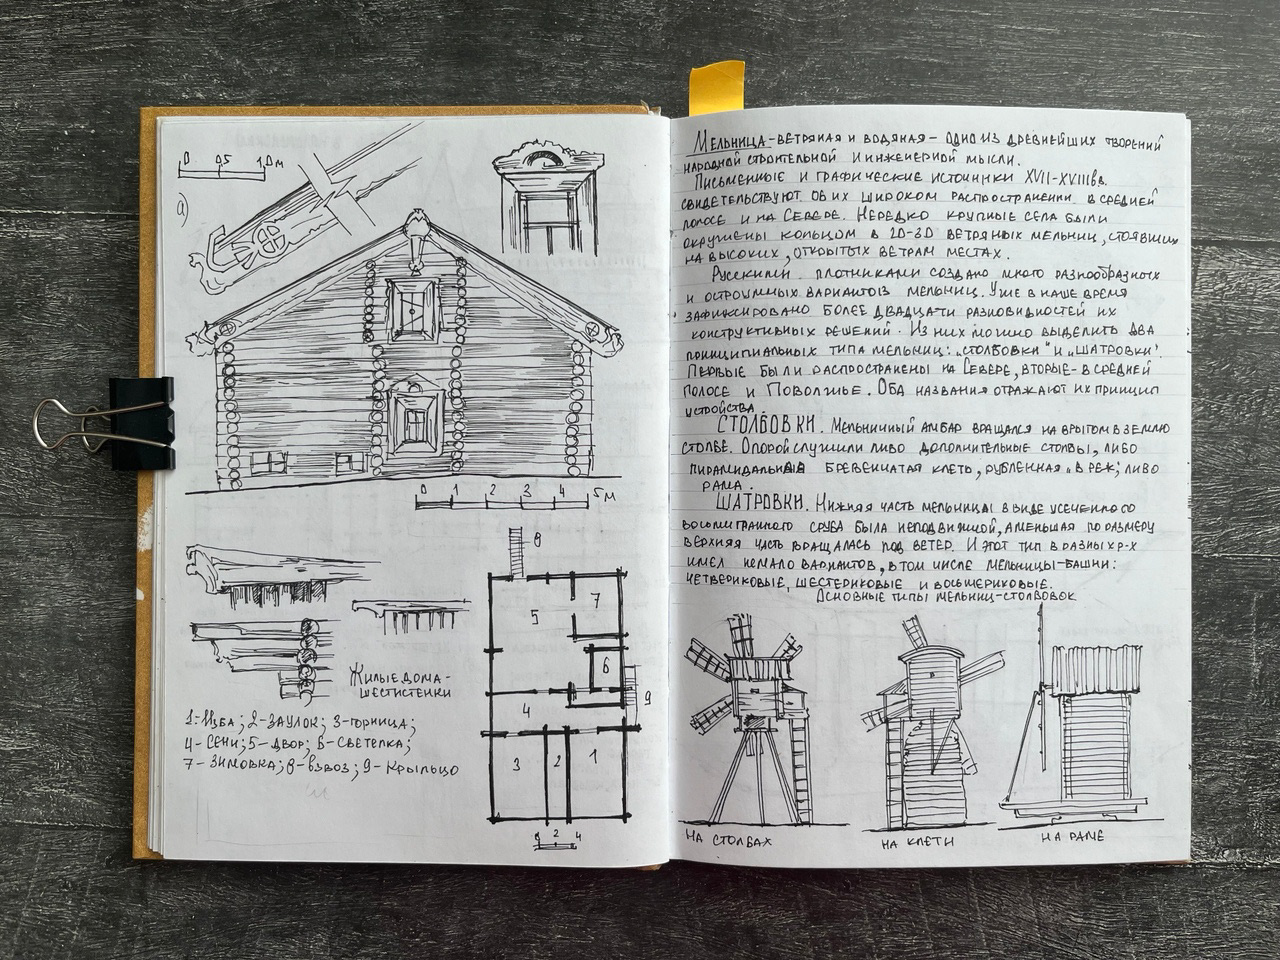 0 0,5 1,0м
а)
0 1 2 3 4 5м
8
7
5
6
9
4
3
2
1
0 2 4
Жилые дома-
шестистенки
1-Изба; 2-заулок; 3-горница;
4-Сени; 5-двор; 6-светелка;
7-Зимовка; 8-взвоз; 9-Крыльцо
Мельница-ветряная и водяная-одно из древнейших творений
народной строительной и инженерной мысли.
Письменные и графические источники XVII-XVIIIвв.
свидетельствуют об их широком распространении в средней
полосе и на Севере. Нередко крупные села были
окружены кольцом в 20-30 ветряных мельниц, стоявших
на высоких, открытых ветрам местах.
Русскими плотниками создано много разнообразных
и остроумных вариантов мельниц. Уже в наше время
зафиксировано более двадцати разновидностей их
конструктивных решений. Из них можно выделить два
принципиальных типа мельниц: „столбовки" и „шатровки".
Первые были распространены на Севере, вторые-в средней
полосе и Поволжье. Оба названия отражают их принцип
устройства.
СТОЛБОВКИ. Мельничный амбар вращался на врытом в землю
столбе. Опорой служили либо дополнительные столбы, либо
пирамидальная бревенчатая клеть, рубленная „в реж", либо
рама.
ШАТРОВКИ. Нижняя часть мельницы в виде усеченного
восьмигранного сруба была неподвижной, а меньшая по размеру
верхняя часть вращалась под ветер. И этот тип в разных р-х
имел немало вариантов, в том числе мельницы-башни:
четвериковые, шестериковые и восьмериковые.
Основные типы мельниц-столбовок
на столбах
на клети
на раме